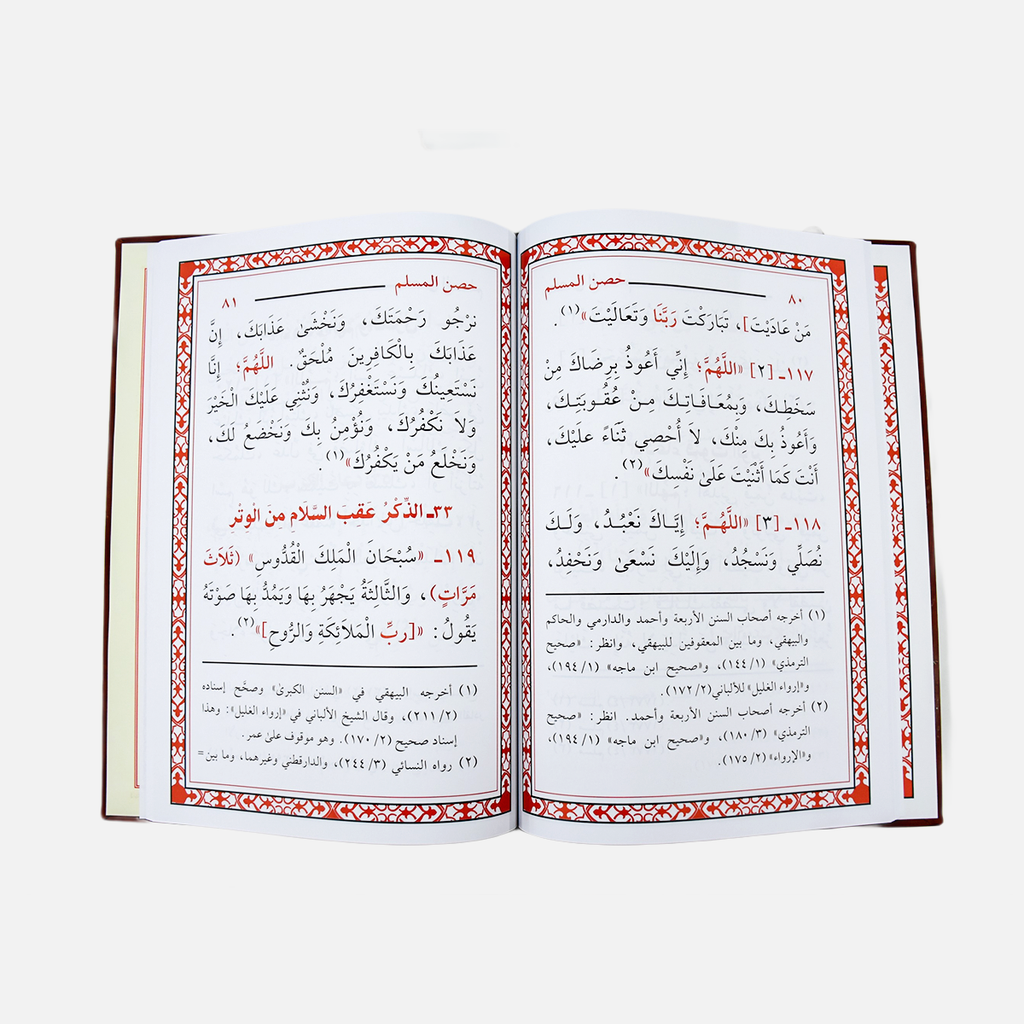 حصن المسلم ٨٠
مَنْ عَادَيْتَ]، تَبَارَكْتَ رَبَّنَا وَتَعَالَيْتَ»(١).
١١٧ـ [٢] «اللَّهُمَّ؛ إِنِّي أَعُوذُ بِرِضَاكَ مِنْ
سَخَطِكَ، وَبِمُعَافَاتِكَ مِنْ عُقُوبَتِكَ،
وَأَعُوذُ بِكَ مِنْكَ، لاَ أُحْصِي ثَنَاءً عَلَيْكَ،
أَنْتَ كَمَا أَثْنَيْتَ عَلَىٰ نَفْسِكَ»(٢).
١١٨ـ [٣] «اللَّهُمَّ؛ إِيَّاكَ نَعْبُدُ، وَلَكَ
نُصَلِّي وَنَسْجُدُ، وَإِلَيْكَ نَسْعَىٰ وَنَحْفِدُ،
(١) أخرجه أصحاب السنن الأربعة وأحمد والدارمي والحاكم
والبيهقي، وما بين المعقوفين للبيهقي، وانظر: «صحيح
الترمذي» (١/ ١٤٤)، و«صحيح ابن ماجه» (١/ ١٩٤)،
و«إرواء الغليل» للألباني(٢/ ١٧٢).
(٢) أخرجه أصحاب السنن الأربعة وأحمد. انظر: «صحيح
الترمذي» (٣/ ١٨٠)، و«صحيح ابن ماجه» (١/ ١٩٤)،
و«الإرواء» (٢/ ١٧٥).
حصن المسلم ٨١
نَرْجُو رَحْمَتَكَ، وَنَخْشَىٰ عَذَابَكَ، إِنَّ
عَذَابَكَ بِالْكَافِرِينَ مُلْحَقٌ. اللَّهُمَّ؛ إِنَّا
نَسْتَعِينُكَ وَنَسْتَغْفِرُكَ، وَنُثْنِي عَلَيْكَ الْخَيْرَ
وَلاَ نَكْفُرُكَ، وَنُؤْمِنُ بِكَ وَنَخْضَعُ لَكَ،
وَنَخْلَعُ مَنْ يَكْفُرُكَ»(١).
٣٣ـ الذِّكْرُ عَقِبَ السَّلَامِ مِنَ الْوِتْرِ
١١٩ـ «سُبْحَانَ الْمَلِكِ الْقُدُّوسِ» (ثَلَاثَ
مَرَّاتٍ)، وَالثَّالِثَةُ يَجْهَرُ بِهَا وَيَمُدُّ بِهَا صَوْتَهُ
يَقُولُ: «[ربِّ الْمَلاَئِكَةِ وَالرُّوحِ]»(٢).
(١) أخرجه البيهقي في «السنن الكبرىٰ» وصحَّح إسناده
(٢/ ٢١١)، وقال الشيخ الألباني في «إرواء الغليل»: وهذا
إسناد صحيح (٢/ ١٧٠). وهو موقوف علىٰ عمر.
(٢) رواه النسائي (٣/ ٢٤٤)، والدارقطني وغيرهما، وما بين =